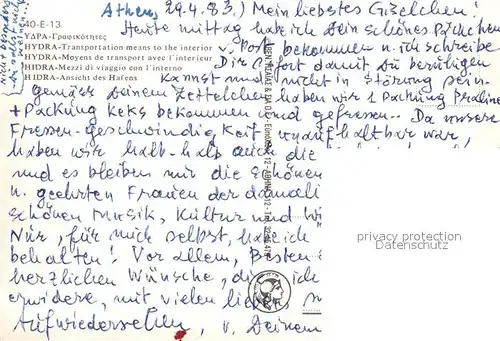 Athen, 29.4.83.) Mein liebstes Giselchen!
Heute mittag habe ich Dein schönes Päckchen
v. Post bekommen u. ich schreibe
Dir sofort damit Du beruhigen
kannst und nicht in Störung sein.
gemäss Deinem Zettelchen haben wir 1 Packung Praline
+ Packung Keks bekommen und gefressen.. Da unsere
Fressen-Geschwindigkeit unaufhaltbar war,
haben wir halb-halb auch die
und es bleiben mir die schönen
u. geehrten Frauen der damali
schönen Musik, Kultur und Wi
Nur, für mich selbst, habe ich
behalten! Vor allem, Besten
herzlichen Wünsche, die ich
erwidere, mit vielen lieben,
Aufwiedersehen, v. Deinem
40-E-13
ΥΔΡΑ-Γραφικότητες
HYDRA-Transportation means to the interior
HYDRA-Moyens de transport avec l'intérieur
HIDRA-Mezzi di viaggio con l'interno
HIDRA-Ansicht des Hafens
privacy protection
Datenschutz